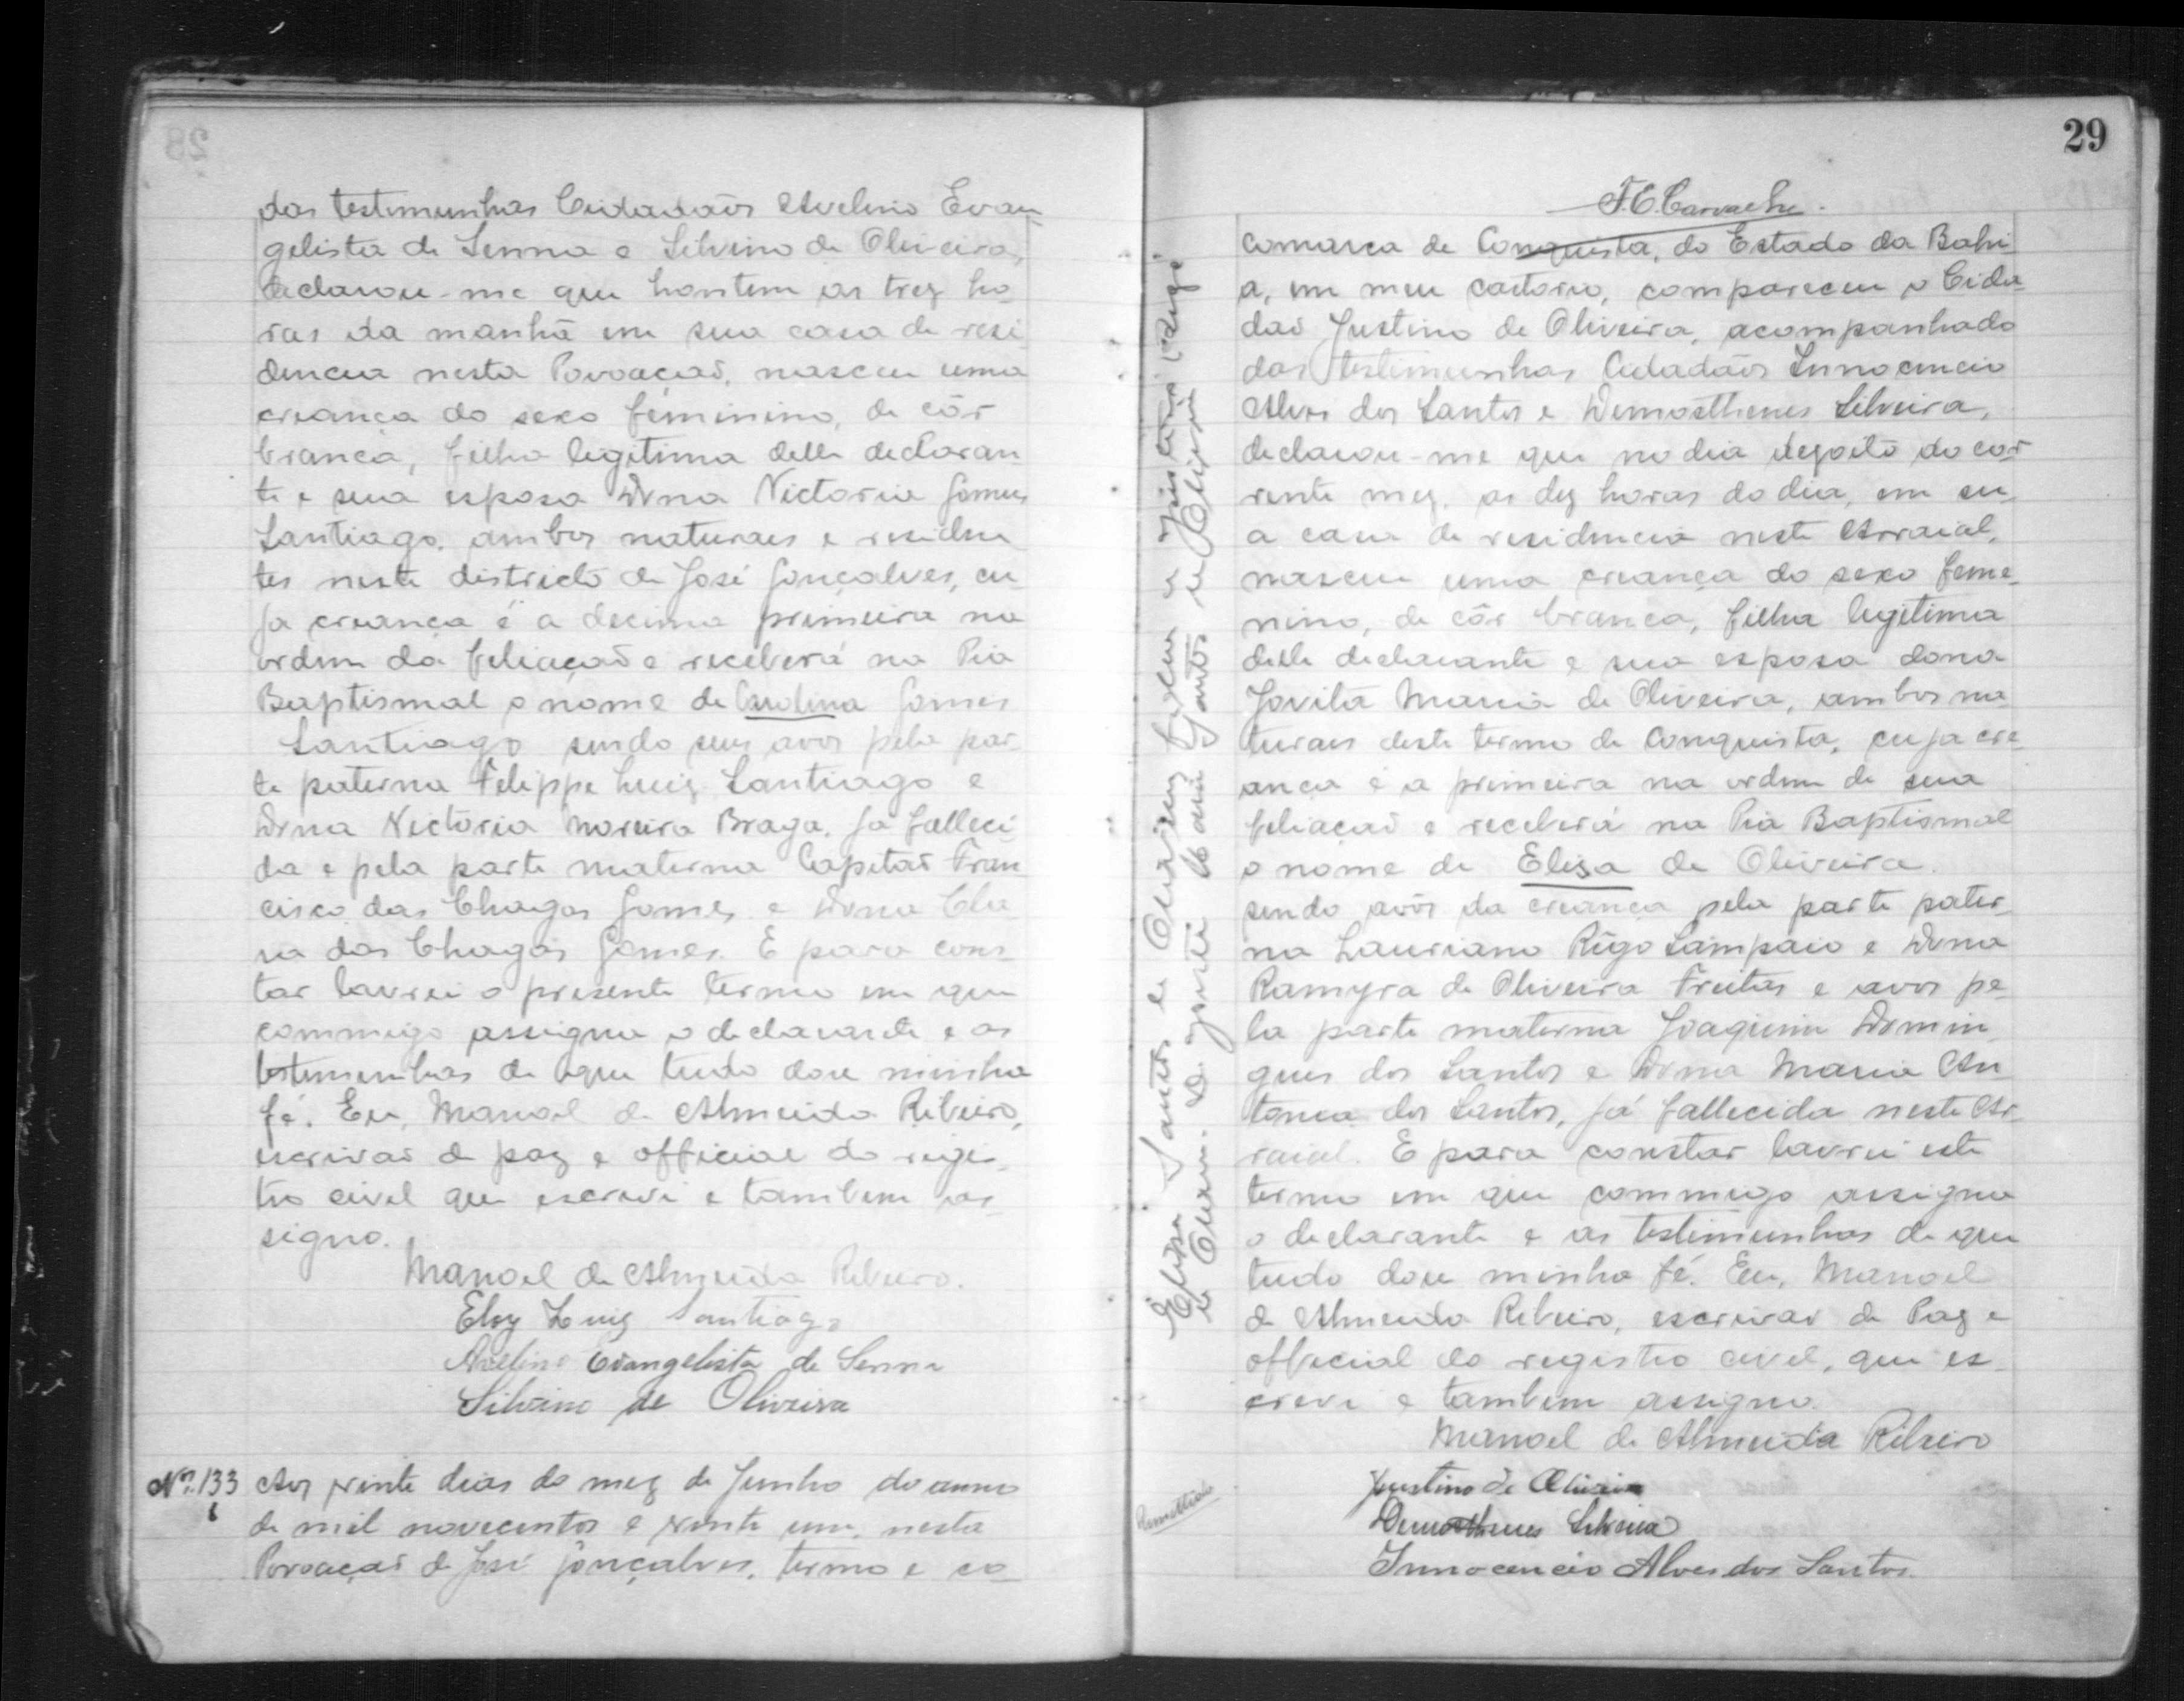 das testemunhas Cidadaõs Avelino Evan
gelista de Senna e Silvino de Oliveira,
declarou-me que hontem as trez ho
ras da manhã em sua casa de resi
dencia nesta Povoaçaõ, nasceu uma
creança do sexo feminino, de côr
branca, filha legitima delle declaran
te e sua esposa Dona Victoria Gomes
Santiago, ambos naturaes e residen
tes neste districto de José Gonçalves, cu
ja creança é a decima primeira na
ordem da filiaçaõ e receberá na Pia
Baptismal o nome de Carolina Gomes
Santiago sendo seus avos pela par
te paterna Felippe Luiz Santiago e
Dona Victoria Moreira Braga, ja falleci
da e pela parte materna Capitaõ Fran
cisco das Chagas Gomes e Dona Cla
ra das Chagas Gomes. E para cons
tar lavrei o presente termo em que
commigo assigna o declarante e as
testemunhas de que tudo dou minha
fé. Eu, Manoel de Almeida Ribeiro,
escrivaõ de paz e official do regis
tro civel que escrevi e tambem as
signo.
Manoel de Almeida Ribeiro.
Eloy Luiz Santiago
Avelino Evangelista de Senna
Silvino de Oliveira
Nº. 133 Aos vinte dias do mez de Junho do anno
de mil novecentos e vinte um, nesta
Povoaçaõ de José Gonçalves, termo e co
29
F. E. Carvalho.
comarca de Conquista, do Estado da Bahi
a, em meu cartorio, compareceu o Cida
daõ Justino de Oliveira, acompanhado
das testemunhas Cidadaõs Innocencio
Alves dos Santos e Demosthenes Silveira,
declarou-me que no dia dezoito do cor
rente mez, as dez horas do dia, em su
a casa de residencia neste Arraial,
nasceu uma creança do sexo feme
nino, de côr branca, filha legitima
delle declarante e sua esposa dona
Jovita Maria de Oliveira, ambos na
turaes deste termo de Conquista, cuja cre
ança é a primeira na ordem de sua
filiaçaõ e receberá na Pia Baptismal
o nome de Elisa de Oliveira.
sendo avós da creança pela parte pater
na Lauriano Rigo Sampaio e Dona
Ramyra de Oliveira Freitas e avos pe
la parte materna Joaquim Domin
gues dos Santos e Dona Maria An
tonia dos Santos, já fallecida neste Ar
raial. E para constar lavrei este
termo em que commigo assigna
o declarante e as testemunhas de que
tudo dou minha fé. Eu, Manoel
de Almeida Ribeiro, escrivaõ de Paz e
official do registro civel, que es
crevi e tambem assigno.
Manoel de Almeida Ribeiro
Justino de Oliveira
Demosthenes Silveira
Innocencio Alves dos Santos.
Remettido